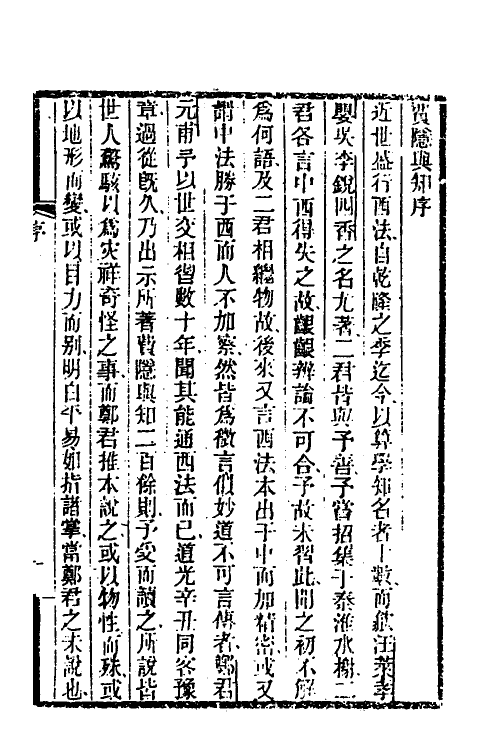 費隱與知序
近世盛行西法自乾隆之季迄今以算學知名者十數而歙汪萊孝
嬰吳李銳四香之名尤著二君皆與予善予嘗招集于秦淮水榭二
君各言中西得失之故齦齦辨論不可合予故未習此聞之初不解
為何語及二君相繼物故後來又言西法本出于中而加精密或又
謂中法勝于西而人不加察然皆為微言眇妙道不可言傳者鄭君
元甫予以世交相習數十年聞其能通西法而已道光辛丑同客豫
章過從旣久乃出示所著費隱與知二百餘則予受而讀之所說皆
世人驚駭以為灾祥奇怪之事而鄭君推本說之或以物性而殊或
以地形而變或以目力而別明白平易如指諸掌當鄭君之未說也
序
一